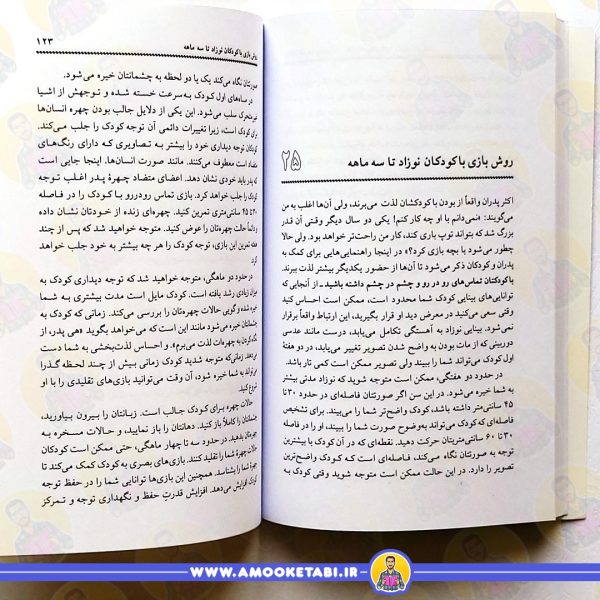 ۲۵ روش بازی با کودکان نوزاد تا سه ماهه
اکثر پدران واقعاً از بودن با کودکشان لذت می‌برند، ولی آن‌ها اغلب به من
می‌گویند: «نمی‌دانم با او چه کار کنم! یکی دو سال دیگر وقتی آن قدر
بزرگ شد که بتواند توپ بازی کند، کار من راحت‌تر خواهد بود. ولی حالا
چطور می‌شود با بچه بازی کرد؟» در اینجا راهنمایی‌هایی برای کمک به
پدران و کودکان ذکر می‌شود تا آن‌ها از حضور یکدیگر بیشتر لذت ببرند.
با کودکتان تماس‌های رو در رو و چشم در چشم داشته باشید. از آنجایی که
توانایی‌های بینایی کودک شما محدود است، ممکن است احساس کنید
وقتی سعی می‌کنید در معرض دید او قرار بگیرید، این ارتباط واقعاً برقرار
نمی‌شود. بینایی نوزاد به آهستگی تکامل می‌یابد، درست مانند عدسی
دوربینی که از مات بودن به واضح شدن تصویر تغییر می‌یابد، و در دو هفتهٔ
اول کودک می‌تواند شما را ببیند ولی تصویر ممکن است کمی تار باشد.
در حدود دو هفتگی، ممکن است متوجه شوید که نوزاد مدتی بیشتر
به شما خیره می‌شود. در این سن اگر صورتتان فاصله‌ای در حدود ۳۰ تا
۴۵ سانتی‌متر داشته باشد، کودک واضح‌تر شما را می‌بیند. برای تشخیص
فاصله‌ای که کودک می‌تواند به‌وضوح صورت شما را ببیند، او را در فاصلهٔ
۳۰ تا ۶۰ سانتی‌متریتان حرکت دهید. نقطه‌ای که در آن کودک با بیشترین
توجه به صورتتان نگاه می‌کند، فاصله‌ای است که کودک واضح‌ترین
تصویر را دارد. در این حالت ممکن است متوجه شوید وقتی کودک به
روش بازی با کودکان نوزاد تا سه ماهه ۱۲۳
صورتتان نگاه می‌کند یک یا دو لحظه به چشمانتان خیره می‌شود.
در ماه‌های اول کودک به‌سرعت خسته شده و توجهش از اشیا
غیرمتحرک سلب می‌شود. این یکی از دلایل جالب بودن چهره انسان‌ها
برای کودک است، زیرا تغییرات دائمی آن توجه کودک را جلب می‌کند.
کودک توجه دیداری خود را بیشتر به تصاویری که دارای رنگ‌های
متضاد است معطوف می‌کنند. مانند صورت انسان‌ها. اینجا جایی است
که پدر باید خودی نشان دهد. اعضای متضاد چهرهٔ پدر اغلب توجه
کودک را جلب خواهد کرد. بازی تماس رودررو با کودک را در فاصله
سانتی‌متری تمرین کنید. چهره‌ای زنده از خودتان نشان داده
و دائماً حالت چهره‌تان را عوض کنید. متوجه خواهید شد که پس از چند
هفته تمرین این بازی، توجه کودک را هر چه بیشتر به خود جلب خواهد
کرد.
در حدود دو ماهگی، متوجه خواهید شد که توجه دیداری کودک به
میزان زیادی رشد یافته است. کودک مایل است مدت بیشتری به شما
خیره شده و گویی حالات چهره‌تان را بررسی می‌کند. زمانی که کودک به
چشمانتان خیره می‌شود، مانند این است که می‌خواهد بگوید «هی پدر، از
نگاه کردن به چهره‌ات لذت می‌برم»، و احساس لذت‌بخشی به شما دست
می‌دهد. زمانی‌که متوجه شدید کودک زمانی بیش از چند لحظه گذرا
می‌تواند به شما خیره شود، آن وقت می‌توانید بازی‌های تقلیدی را با او
شروع کنید.
حالات چهره برای کودک جالب است. زبانتان را بیرون بیاورید،
چشمانتان را کاملاً باز کنید. دهانتان را باز نمایید، و حالات مسخره به
چهره‌تان بدهید. در حدود سه تا چهار ماهگی، حتی ممکن است کودکان
حالات چهرهٔ شما را تقلید کنند. بازی‌های بصری به کودک کمک می‌کند تا
چهرهٔ شما را بشناسد. همچنین این بازی‌ها توانایی شما را در حفظ توجه
کودک افزایش می‌دهد. افزایش قدرتِ حفظ و نگهداری توجه و تمرکز
WWW.AMOOKETABI.IR